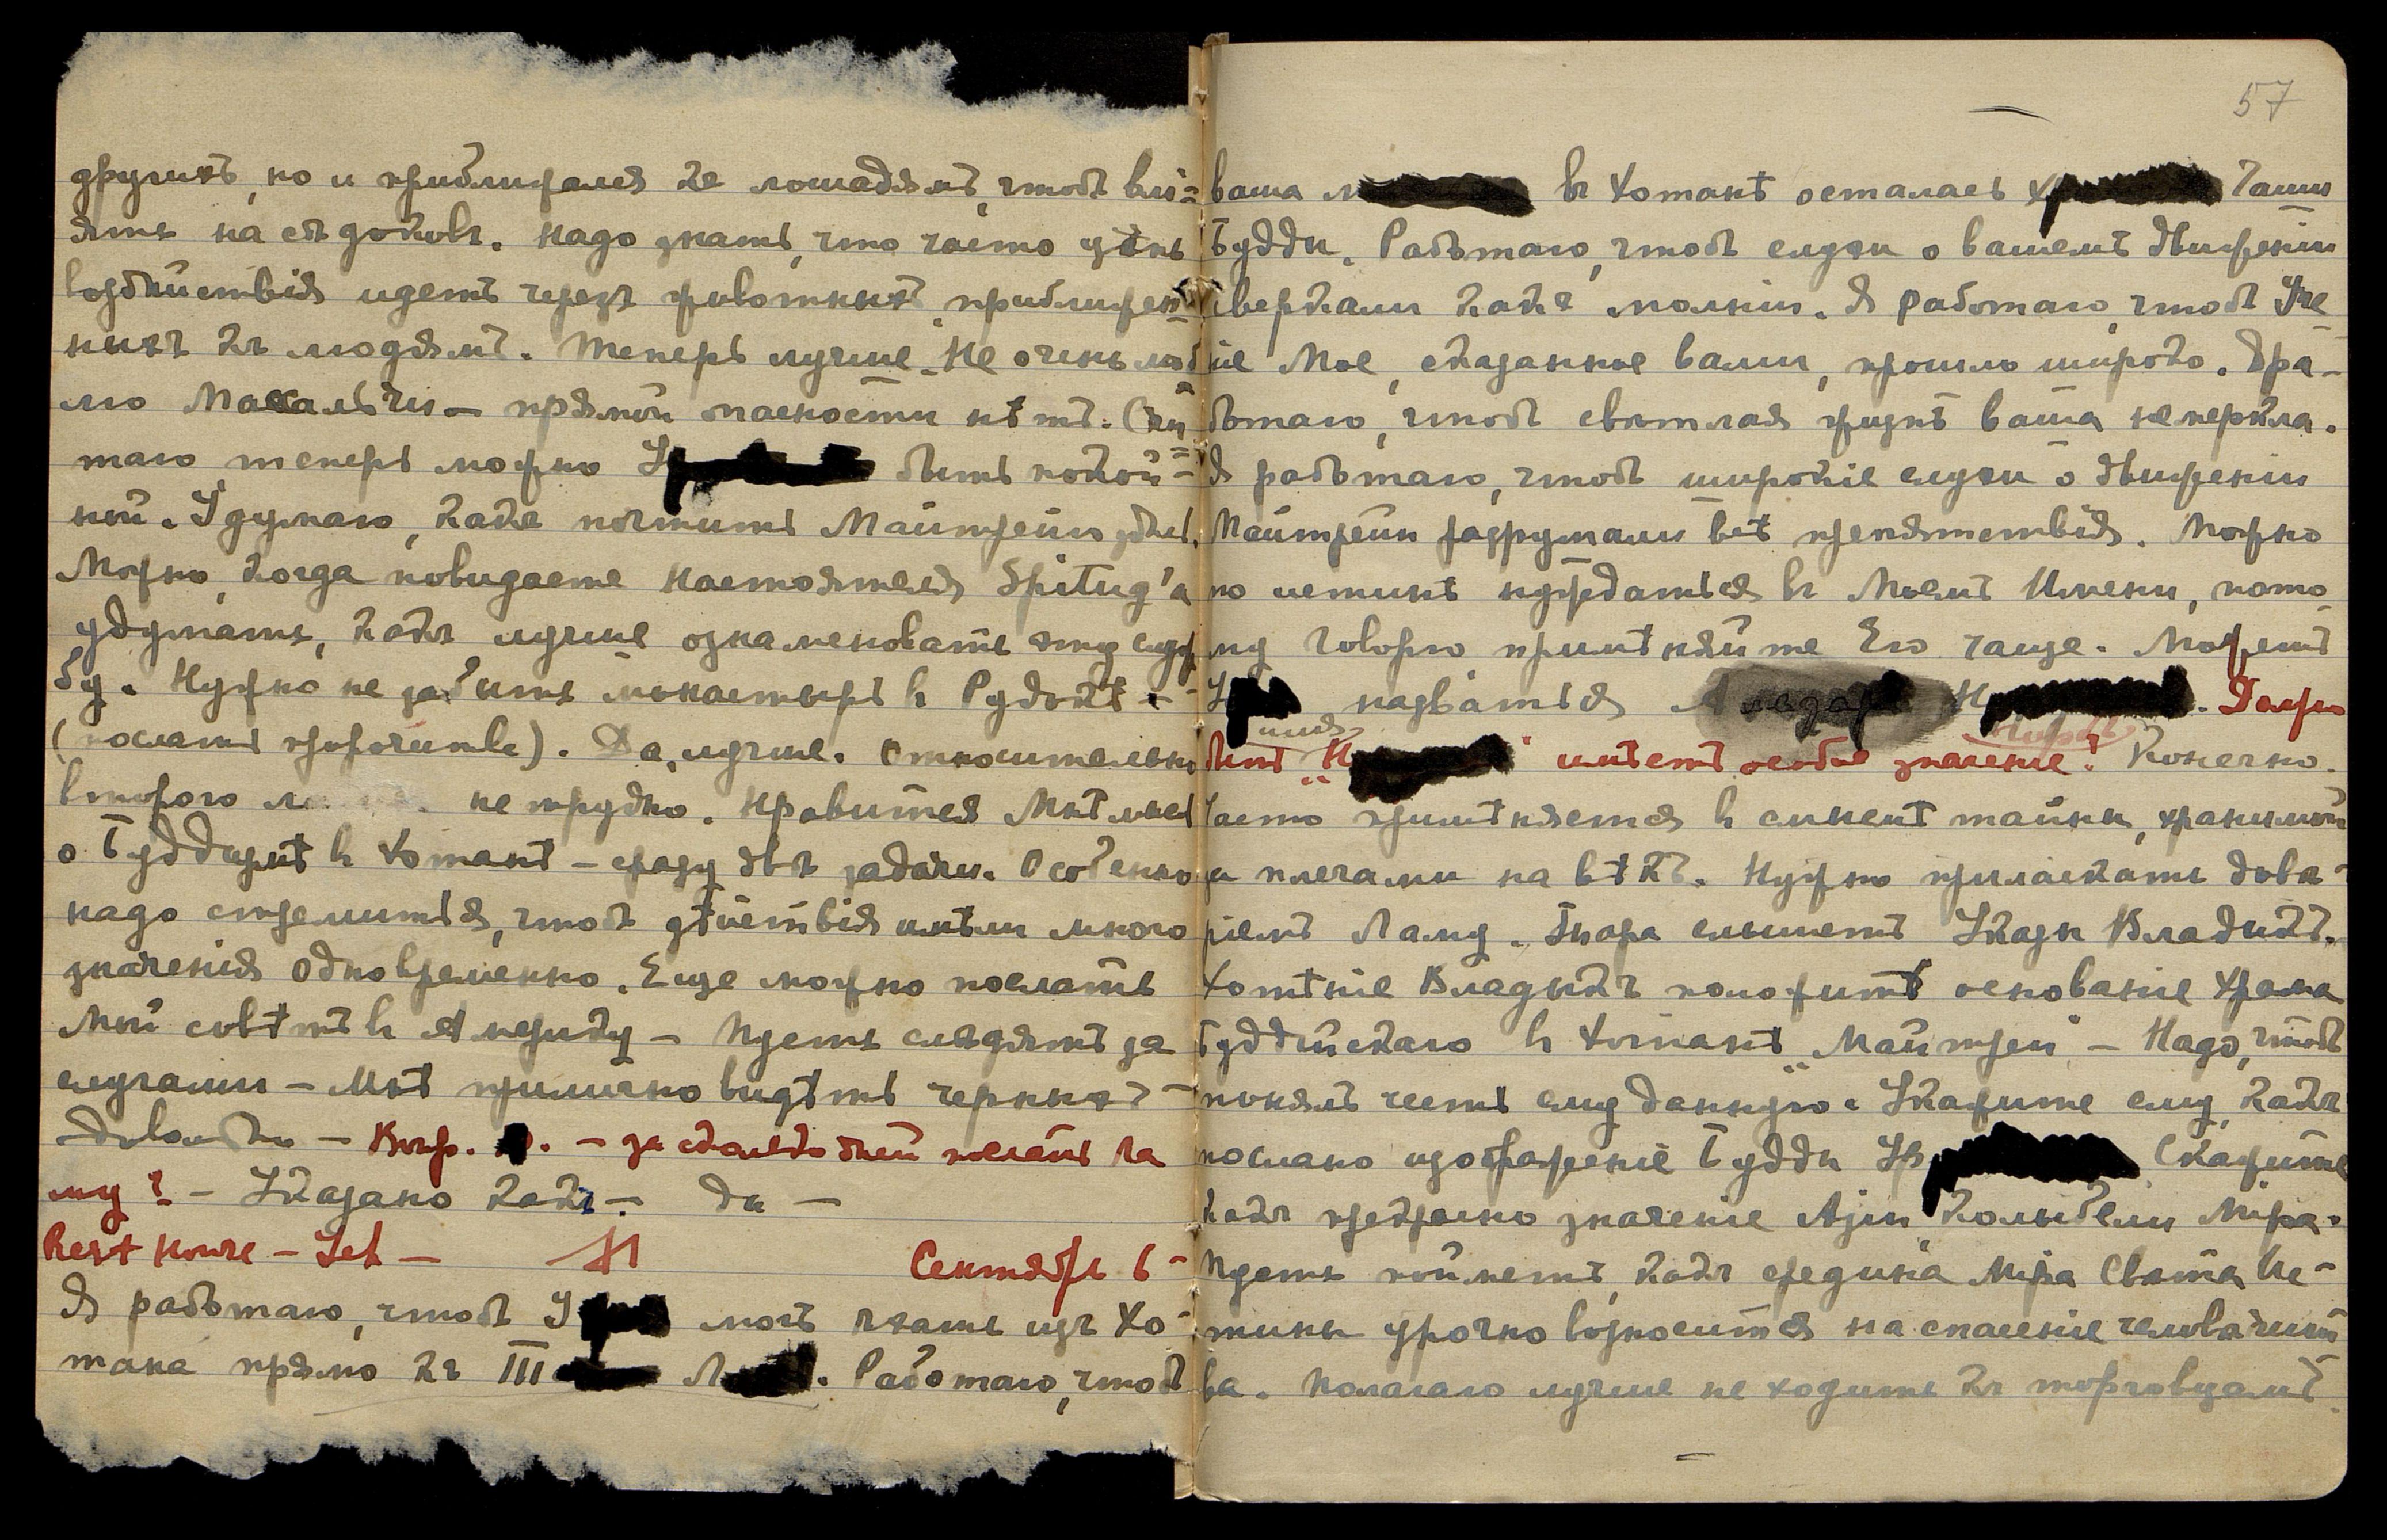 другихъ, но и приближался къ лошадямъ, чтобъ влі=
ять на сѣдоковъ. Надо знать, что часто цѣнь
воздѣйствія идетъ черезъ животныхъ, приближен=
ныхъ къ людямъ. Теперь лучше. Не очень люб
лю Махальчи — прямой опасности нѣтъ. Счи=
таю теперь можно У быть покой=
ной. Я думаю, какъ почтить Майтрейю здѣсь.
Можно, когда повидаете настоятеля Spitug'а
удумать, какъ лучше ознаменовать эту служ
бу. Нужно не забыть монастырь в Рудокѣ —
(послать пророчиства). Да, лучше. Относительно
второго не трудно. Нравится Мнѣ мысль
о Буддизмѣ в Хотанѣ — сразу двѣ задачи. Особенно
надо стремиться, чтобъ дѣйствія имѣли много
значенія одновременно. Еще можно послать
Мой совѣтъ в Америку — Пусть слѣдятъ за
случаями — Мнѣ прилично видѣть черныхъ —
— Вопр. — за сколько дней послать Ла
му? — Указано какъ — да —
Rest House — Leh — Сентябрь 6 —
Я работаю, чтобъ У могъ ѣхать изъ Хо=
тана прямо къ III Л. Работаю, чтобъ
57
ваша м въ Хотанѣ осталась х Чаши
Будды. Работаю, чтобъ слухи о вашемъ движеніи
сверкали какъ молніи. Я работаю, чтобъ Уче
ніе Мое, сказанное вами, прошло широко. Я ра—
ботаю, чтобъ свѣтлая жизнь ваша не меркла.
Я работаю, чтобъ широкіе слухи о движеніи
Майтрейи разрушали всѣ препятствія. Можно
по истинѣ нуждаться в Моемъ Имени, пото
му говорю примѣняйте Его чаще. Можетъ
У назваться А Н. Должно
быть „Н“ имѣетъ особое значеніе? Конечно.
Часто примѣняется в смыслѣ тайны, хранимой
за плечами на вѣкъ. Нужно приласкать довѣ—
ріемъ Ламу. Тоара слышетъ Указы Владыкъ.
Хотѣніе Владыкъ положитъ основаніе Храма
Буддійскаго в Хотанѣ „Майтреи — Надо, чтобъ
понялъ честь ему данную. Укажите ему, какъ
послано изображеніе Будды Ур Скажите
какъ прекрасно значеніе Азіи, Колыбели Міра.
Пусть пойметъ, какъ средина Міра Свѣта Ис—
тины урочно возносится на спасеніе человѣчест
ва. Полагаю лучше не ходите къ торговцамъ.